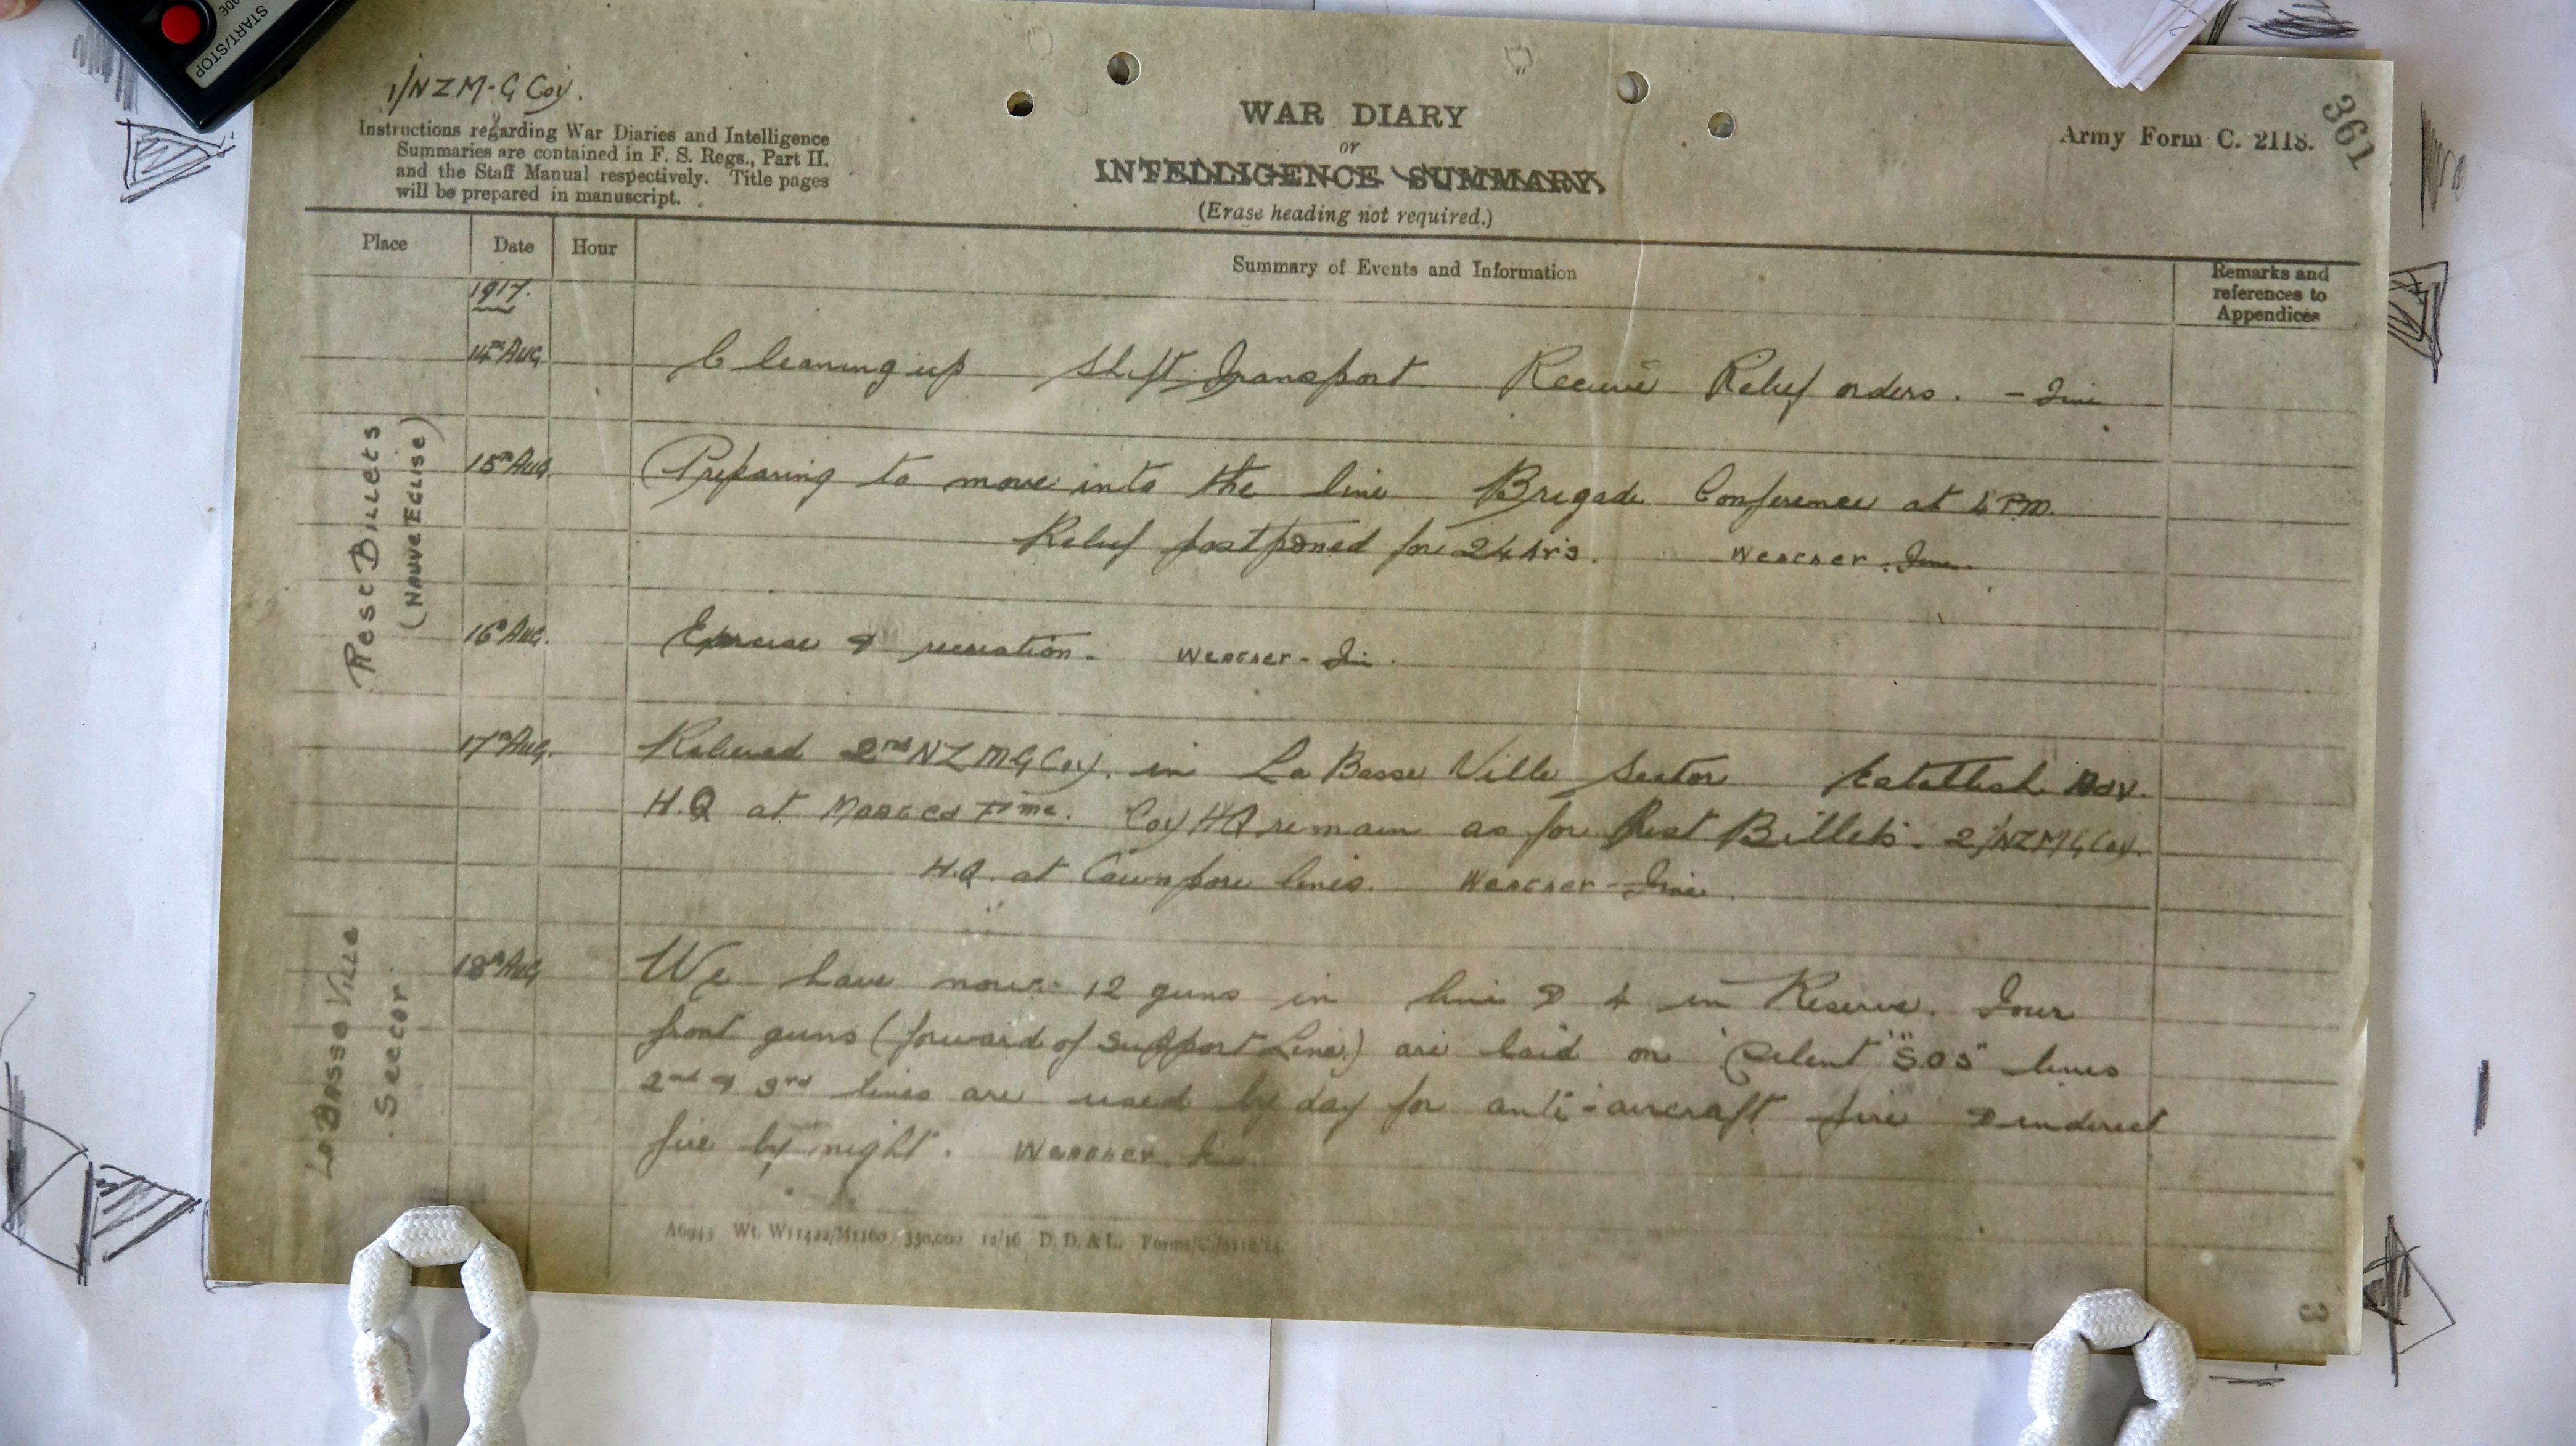 START/STOP
1/NZM-G Coy.
Instructions regarding War Diaries and Intelligence
Summaries are contained in F. S. Regs., Part II.
and the Staff Manual respectively. Title pages
will be prepared in manuscript.
WAR DIARY
or
INTELLIGENCE SUMMARY
(Erase heading not required.)
Army Form C. 2118.
361
Place
Date
Hour
Summary of Events and Information
Remarks and
references to
Appendices
1917.
Rest Billets
(Nauve Eglise)
14th Aug
Cleaning up Shift Transport. Receive Relief orders. - Fine
15th Aug.
Preparing to move into the line Brigade Conference at 4 PM.
Relief postponed for 24 hrs. Weather. Fine.
16th Aug.
Exercise & recreation. Weather - Fine.
17th Aug.
Relieved 2nd NZMG Coy. in La Basse Ville Sector Establish Adv.
H.Q at Coy HQ remain as for Rest Billets. 2/NZMG Coy.
H.Q. at Cawnpore lines. Weather - Fine.
La Basse Ville
Seector
18th Aug
We have now 12 guns in line & 4 in Reserve. Four
front guns (forward of Support Line) are laid on "Silent "S.O.S" lines
2nd & 3rd lines are used by day for anti-aircraft fire & indirect
fire by night. Weather. Fine
A6945 Wt. W11422/M1160 350,000 12/16 D. D. & L. Forms/C./2118/14.
3